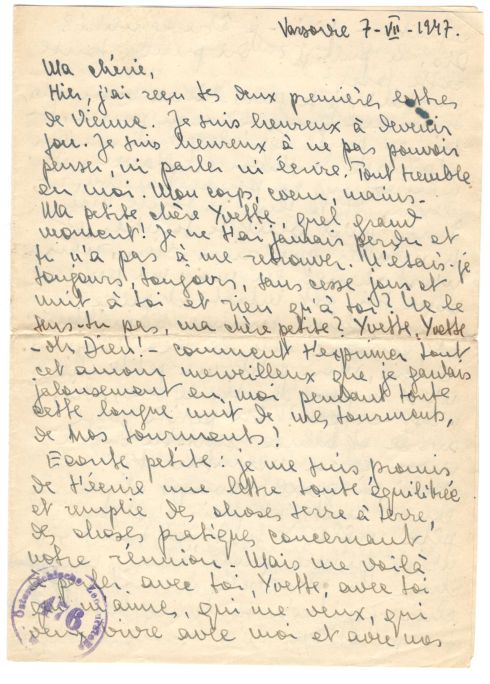 Varsovie 7-VII-1947.
Ma chérie,
Hier, j'ai reçu tes deux premières lettres
de Vienne. Je suis heureux à devenir
fou. Je suis heureux à ne pas pouvoir
penser, ni parler ni écrire. Tout tremble
en moi. Mon corps, coeur, mains.
Ma petite chère Yvette, quel grand
moment! Je ne t'ai jamais perdu et
tu n'a pas à me retrouver. N'étais-je
toujours, toujours, sans cesse jour et
nuit à toi et rien qu'à toi? Ne le
sens-tu pas, ma chère petite? Yvette, Yvette
- oh Dieu! - comment t'exprimer tout
cet amour merveilleux que je gardais
jalousement en moi pendant toute
cette longue nuit de mes tourments,
de nos tourments?
Ecoute petite: je me suis promis
de t'écrire une lettre toute équilibrée
et remplie des choses terre à terre,
des choses pratiques concernant
notre réunion. Mais me voilà
à parler avec toi, Yvette, avec toi
qui m'aime, qui me veux, qui
veux vivre avec moi et avec nos
Österreichische Zensurstelle
476